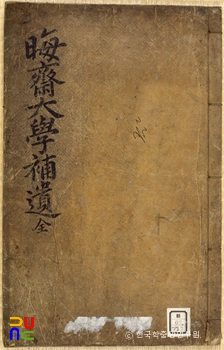 晦齋大學補遺 全
© 한국학중앙연구원